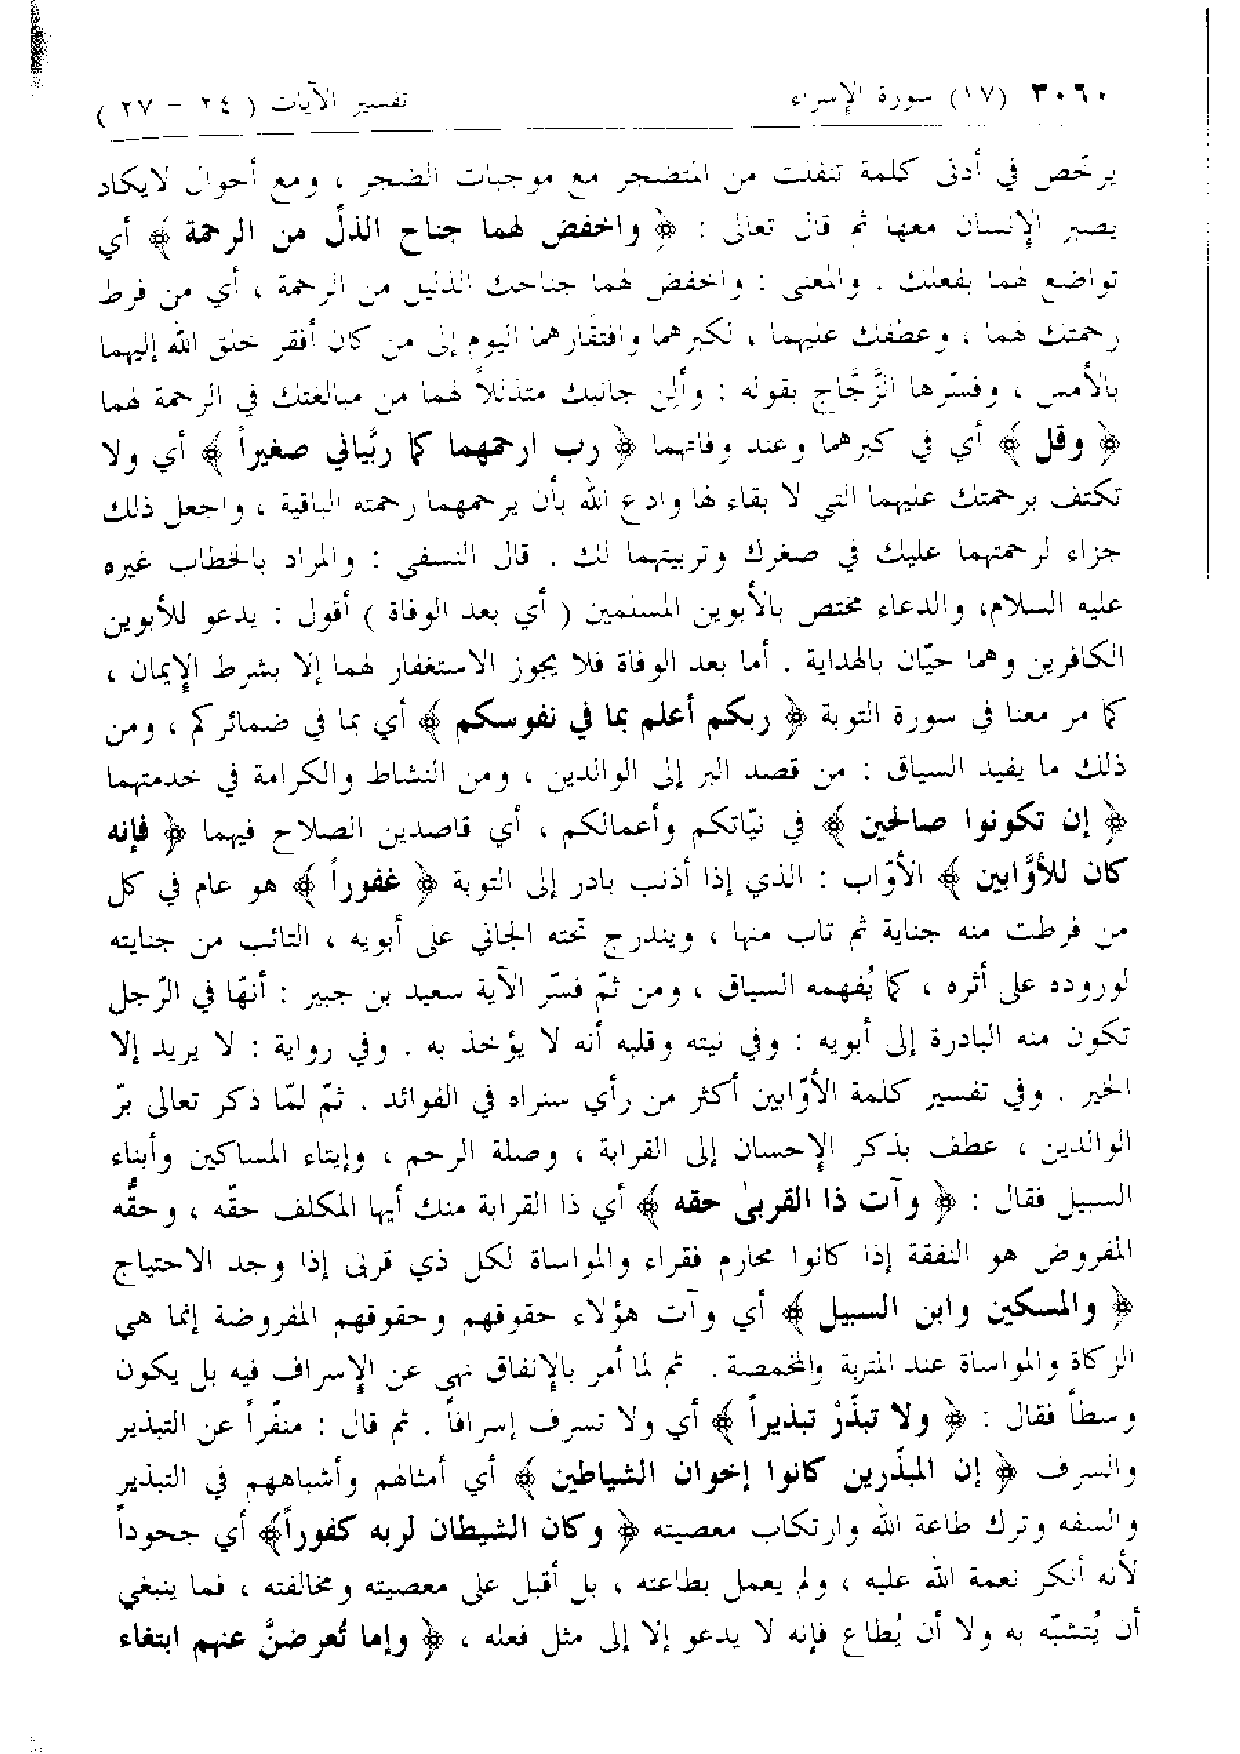 ٣٠٦٠ (١٧) سورة الإسراء تفسير الآيات ( ٢٤ - ٢٧ )
يرخّص في أدنى كلمة تنفلت من المتضجر مع موجبات الضجر ، ومع أحوال لايكاد
يصبر الإنسان معها ثم قال تعالى : ﴿ واخفض لهما جناح الذلّ من الرحمة ﴾ أي
تواضع لهما بفعلك . والمعنى : واخفض لهما جناحك الذليل من الرحمة ، أي من فرط
رحمتك لهما ، وعطفك عليهما ، لكبرهما وافتقارهما اليوم إلى من كان أفقر خلق الله إليهما
بالأمس ، وفسّرها الزّجّاج بقوله : وألِن جانبك متذللاً لهما من مبالغتك في الرحمة لهما
﴿ وقل ﴾ أي في كبرهما وعند وفاتهما ﴿ رب ارحمهما كما ربّياني صغيراً ﴾ أي ولا
تكتف برحمتك عليهما التي لا بقاء لها وادع الله بأن يرحمهما رحمته الباقية ، واجعل ذلك
جزاء لرحمتهما عليك في صغرك وتربيتهما لك . قال النسفي : والمراد بالخطاب غيره
عليه السلام، والدعاء مختص بالأبوين المسلمين ( أي بعد الوفاة ) أقول : يدعو للأبوين
الكافرين وهما حيّان بالهداية . أما بعد الوفاة فلا يجوز الاستغفار لهما إلا بشرط الإيمان ،
كما مر معنا في سورة التوبة ﴿ ربكم أعلم بما في نفوسكم ﴾ أي بما في ضمائركم ، ومن
ذلك ما يفيد السياق : من قصد البر إلى الوالدين ، ومن النشاط والكرامة في خدمتهما
﴿ إن تكونوا صالحين ﴾ في نيّاتكم وأعمالكم ، أي قاصدين الصلاح فيهما ﴿ فإنه
كان للأوّابين ﴾ الأوّاب : الذي إذا أذنب بادر إلى التوبة ﴿ غفوراً ﴾ هو عام في كل
من فرطت منه جناية ثم تاب منها ، ويندرج تحته الجاني على أبويه ، التائب من جنايته
لوروده على أثره ، كما يُفهمه السياق ، ومن ثمّ فسّر الآية سعيد بن جبير : أنهّا في الرّجل
تكون منه البادرة إلى أبويه : وفي نيته وقلبه أنه لا يؤخذ به . وفي رواية : لا يريد إلا
الخير . وفي تفسير كلمة الأوّابين أكثر من رأي سنراه في الفوائد . ثمّ لمّا ذكر تعالى برّ
الوالدين ، عطف بذكر الإحسان إلى القرابة ، وصلة الرحم ، وإيتاء المساكين وأبناء
السبيل فقال : ﴿ وآت ذا القربىٰ حقه ﴾ أي ذا القرابة منك أيها المكلف حقّه ، وحقّه
المفروض هو النفقة إذا كانوا محارم فقراء والمواساة لكل ذي قربى إذا وجد الاحتياج
﴿ والمسكين وابن السبيل ﴾ أي وآت هؤلاء حقوقهم وحقوقهم المفروضة إنما هي
الزكاة والمواساة عند المتربة والمخمصة . ثم لما أمر بالإنفاق نهى عن الإسراف فيه بل يكون
وسطاً فقال : ﴿ ولا تبذّرْ تبذيراً ﴾ أي ولا تسرف إسرافاً . ثم قال : منفّراً عن التبذير
والسرف ﴿ إن المبذّرين كانوا إخوان الشياطين ﴾ أي أمثالهم وأشباههم في التبذير
والسفه وترك طاعة الله وارتكاب معصيته ﴿ وكان الشيطان لربه كفوراً﴾ أي جحوداً
لأنه أنكر نعمة الله عليه ، ولم يعمل بطاعته ، بل أقبل على معصيته ومخالفته ، فما ينبغي
أن يُتشبّه به ولا أن يُطاع فإنه لا يدعو إلا إلى مثل فعله ، ﴿ وإما تُعرضنّ عنهم ابتغاء